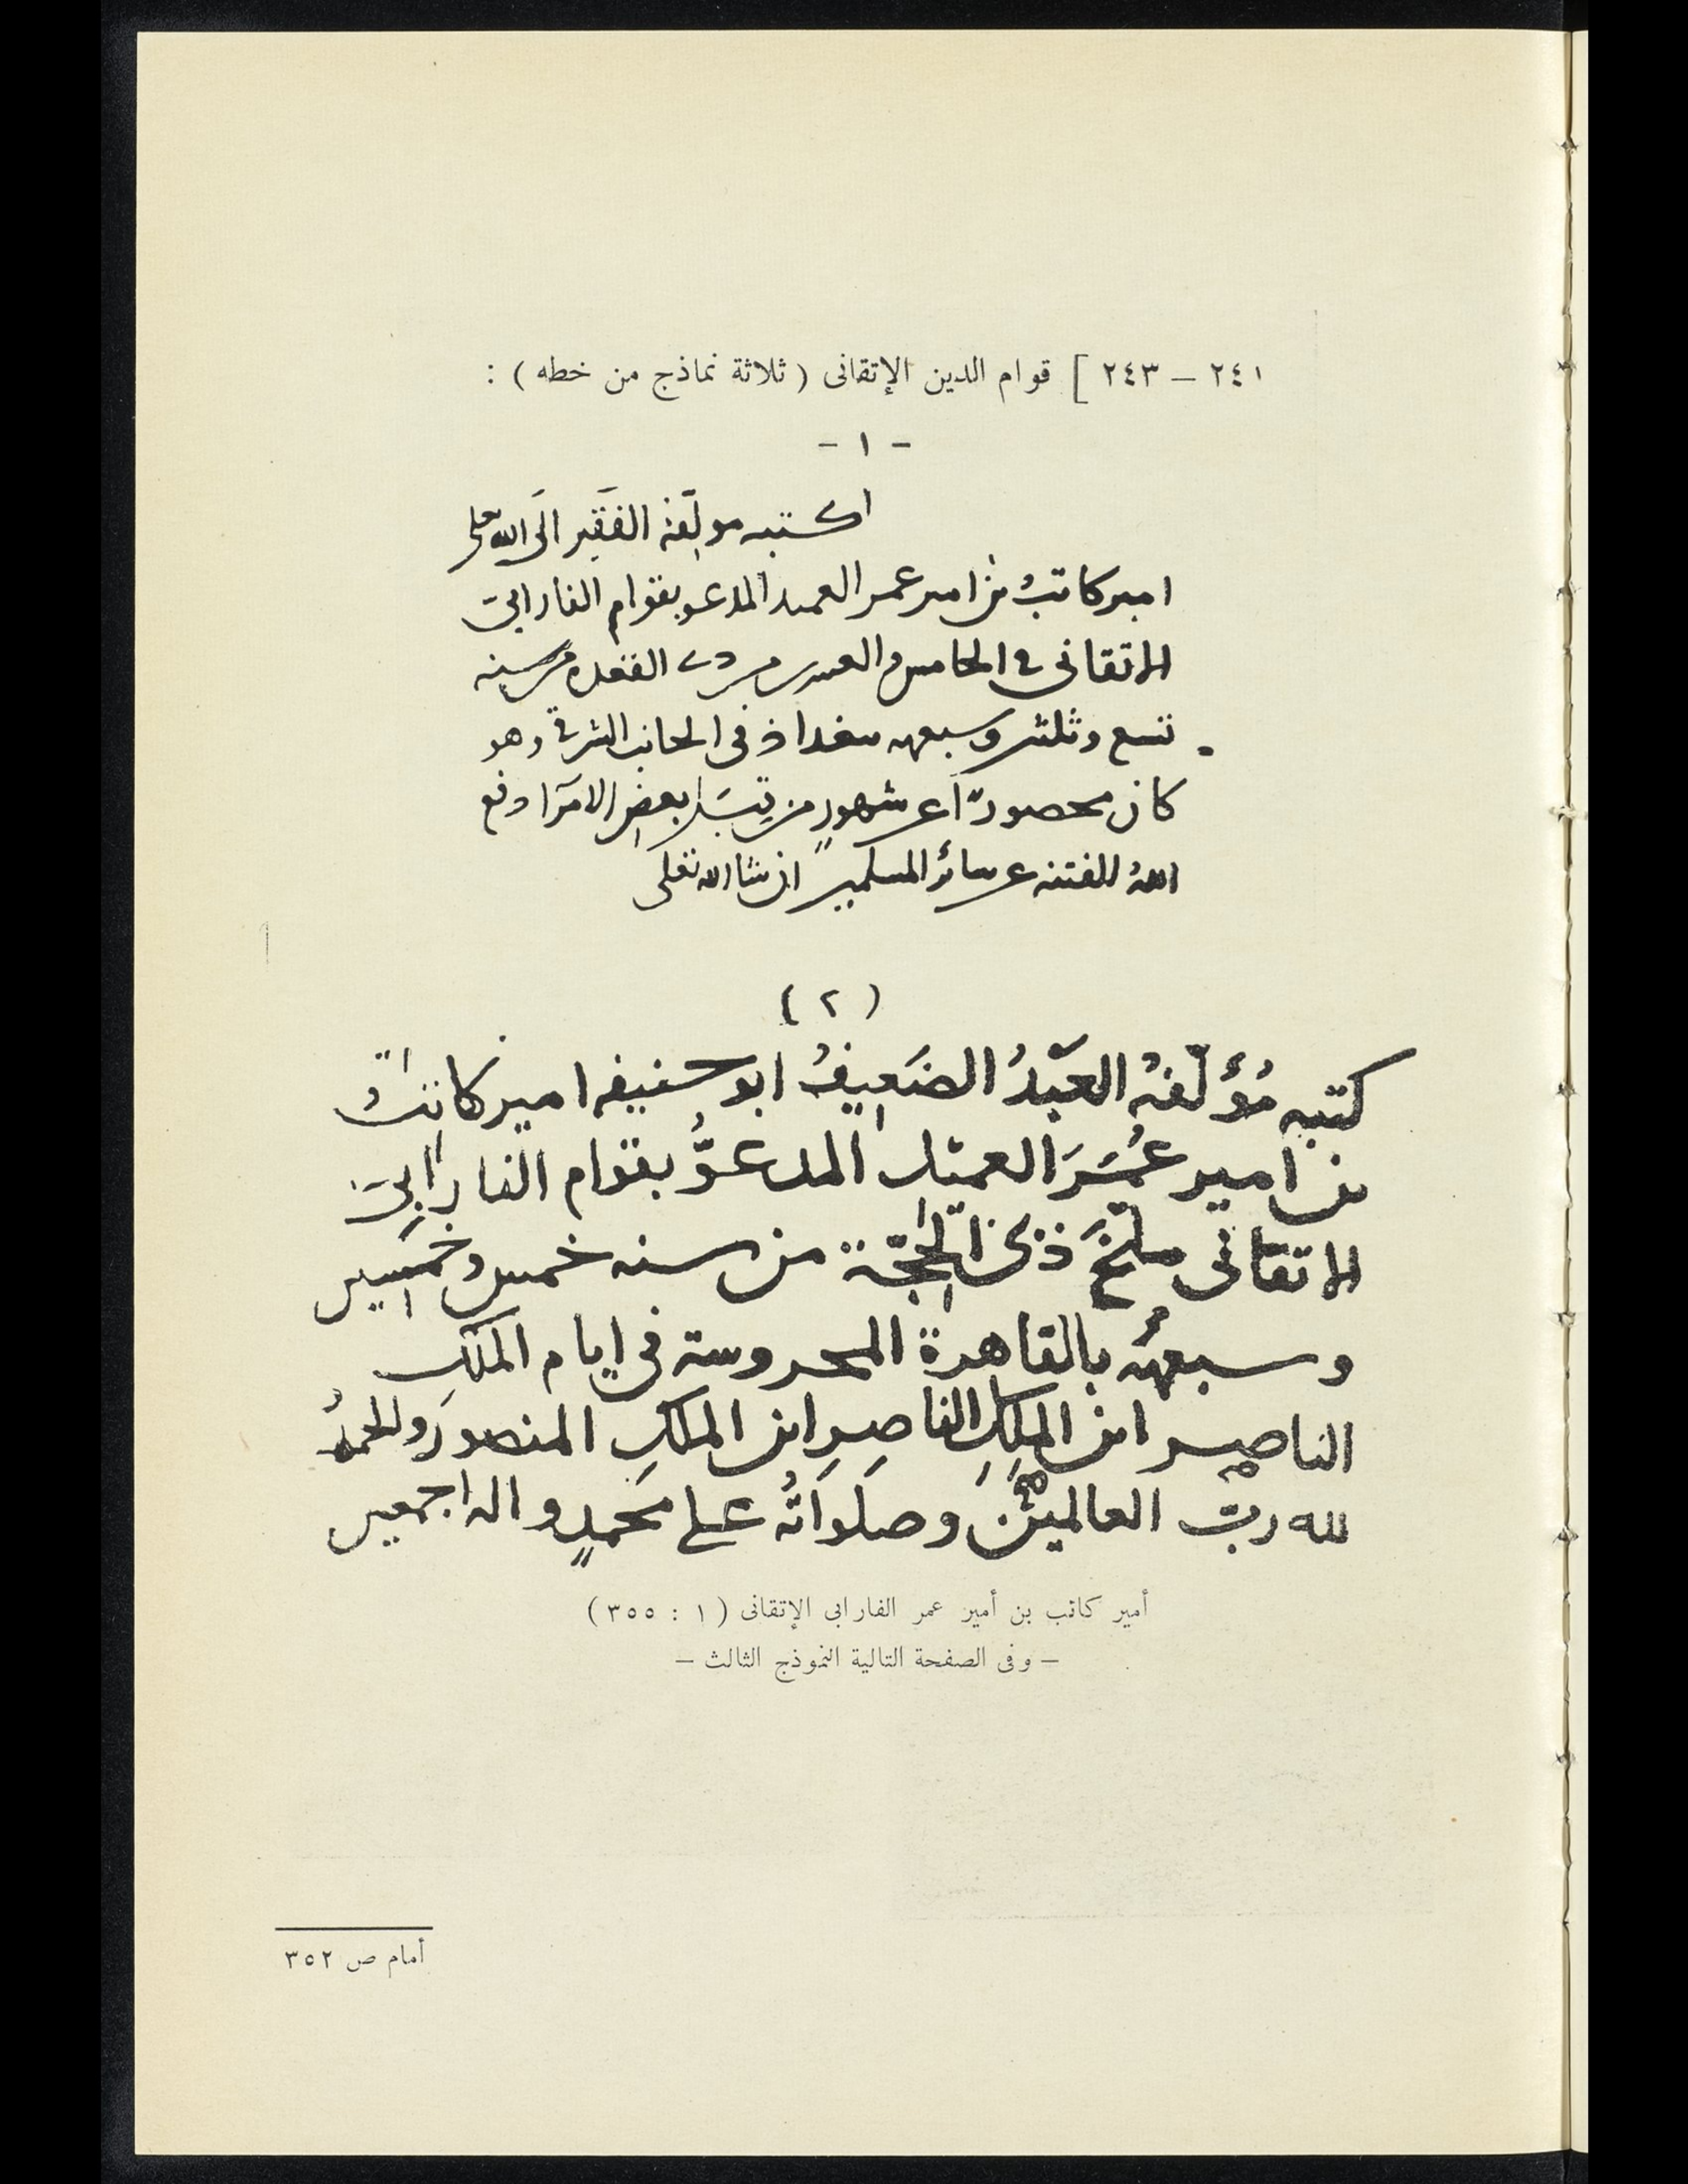 ٢٤١ – ٢٤٣ ] قوام الدين الإتقانى ( ثلاثة نماذج من خطه ) :
– ١ –
اكتبه مولّفه الفقير الى الله تعلى
امير كاتب بن امير عمر العميد المدعو بقوام الفارابى
الاتقانى فى الخامس والعشرين من ذى القعدة من سنه
تسع وثلثين وسبعمه ببغداد فى الجانب الشرقى وهو
كان محصورا عن شهور من بعض الامرا دفع
الله الفتنه عن سائر المسلمين ان شا الله تعلى
( ٢ )
كتبه مُؤلّفهُ العَبْدُ الضَعِيفُ ابو حنيفه امير كاتبُ
بن امير عُمَرَ العميد المدعوُّ بقوام الفارابى
الاتقانى سلخَ ذى الحِجّة من سنه خمس وخمسين
وسبعمئه بالقاهرة المحروسة فى ايام الملكِ
الناصِر ابن الملِكِ الناصِرِ ابن الملكِ المنصور والحمدُ
لله ربّ العالمين وصلَواتُه على محمدٍ واله اجمعين
أمير كاتب بن أمير عمر الفارابى الإتقانى ( ١ : ٣٥٥ )
– وفى الصفحة التالية النموذج الثالث –
أمام ص ٣٥٢